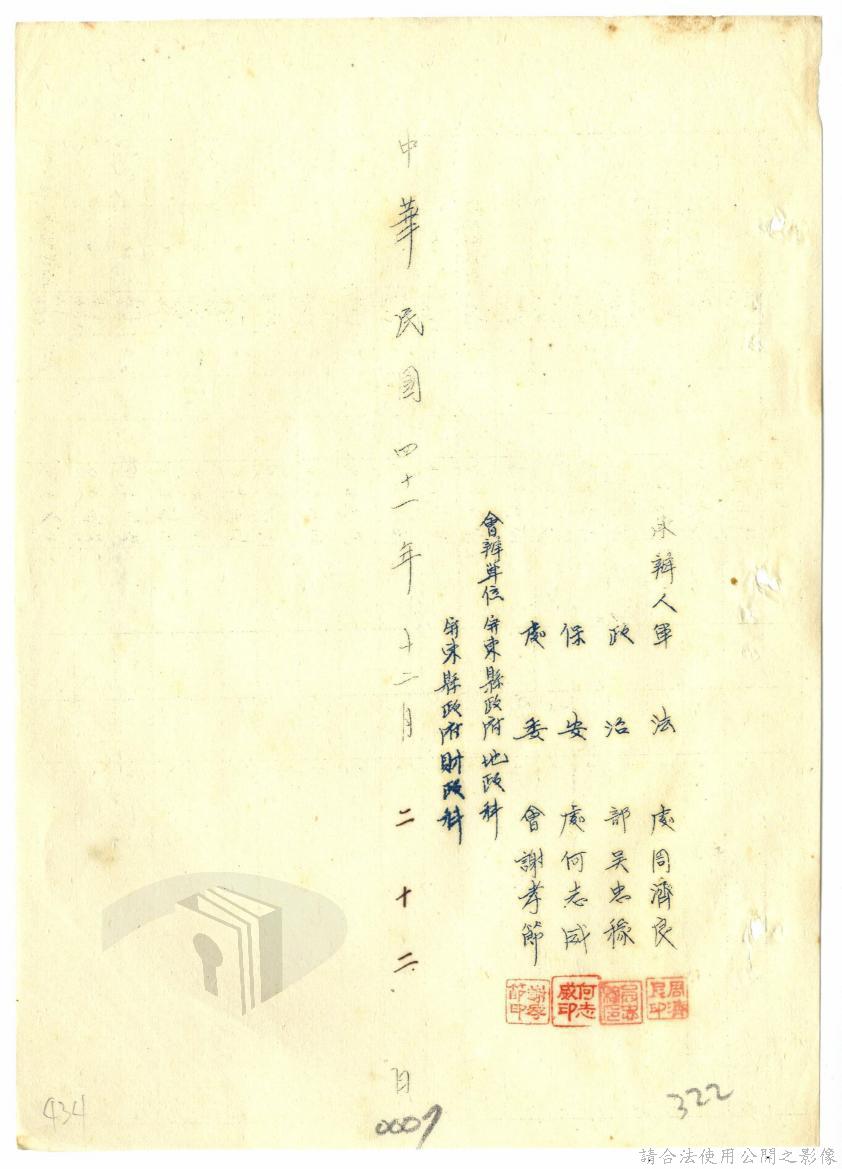 承辦人軍法處周濟良
政治部吴忠稼
保安處何志威
處委會謝孝節
會辦單位屏東縣政府地政科
屏東縣政府財政科
中華民國四十一年十二月二十二日
周濟良印
何志威印
謝孝節印
434
0009
322
請合法使用公開之影像